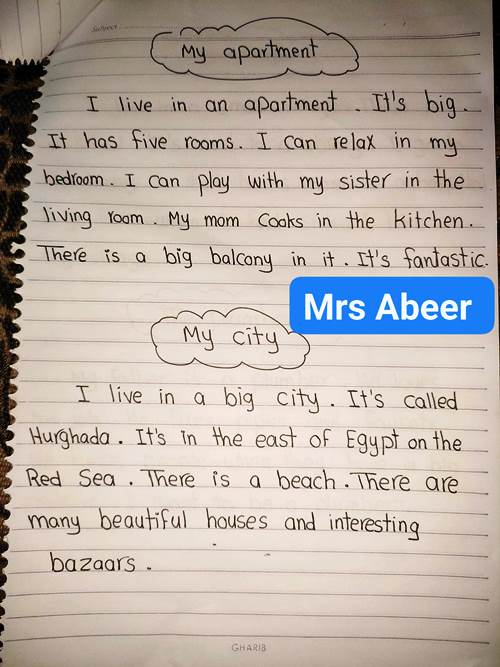 Subject:
My apartment
I live in an apartment. It's big.
It has five rooms. I can relax in my
bedroom. I can play with my sister in the
living room. My mom cooks in the kitchen.
There is a big balcony in it. It's fantastic.
Mrs Abeer
My city
I live in a big city. It's called
Hurghada. It's in the east of Egypt on the
Red Sea. There is a beach. There are
many beautiful houses and interesting
bazaars.
GHARIB